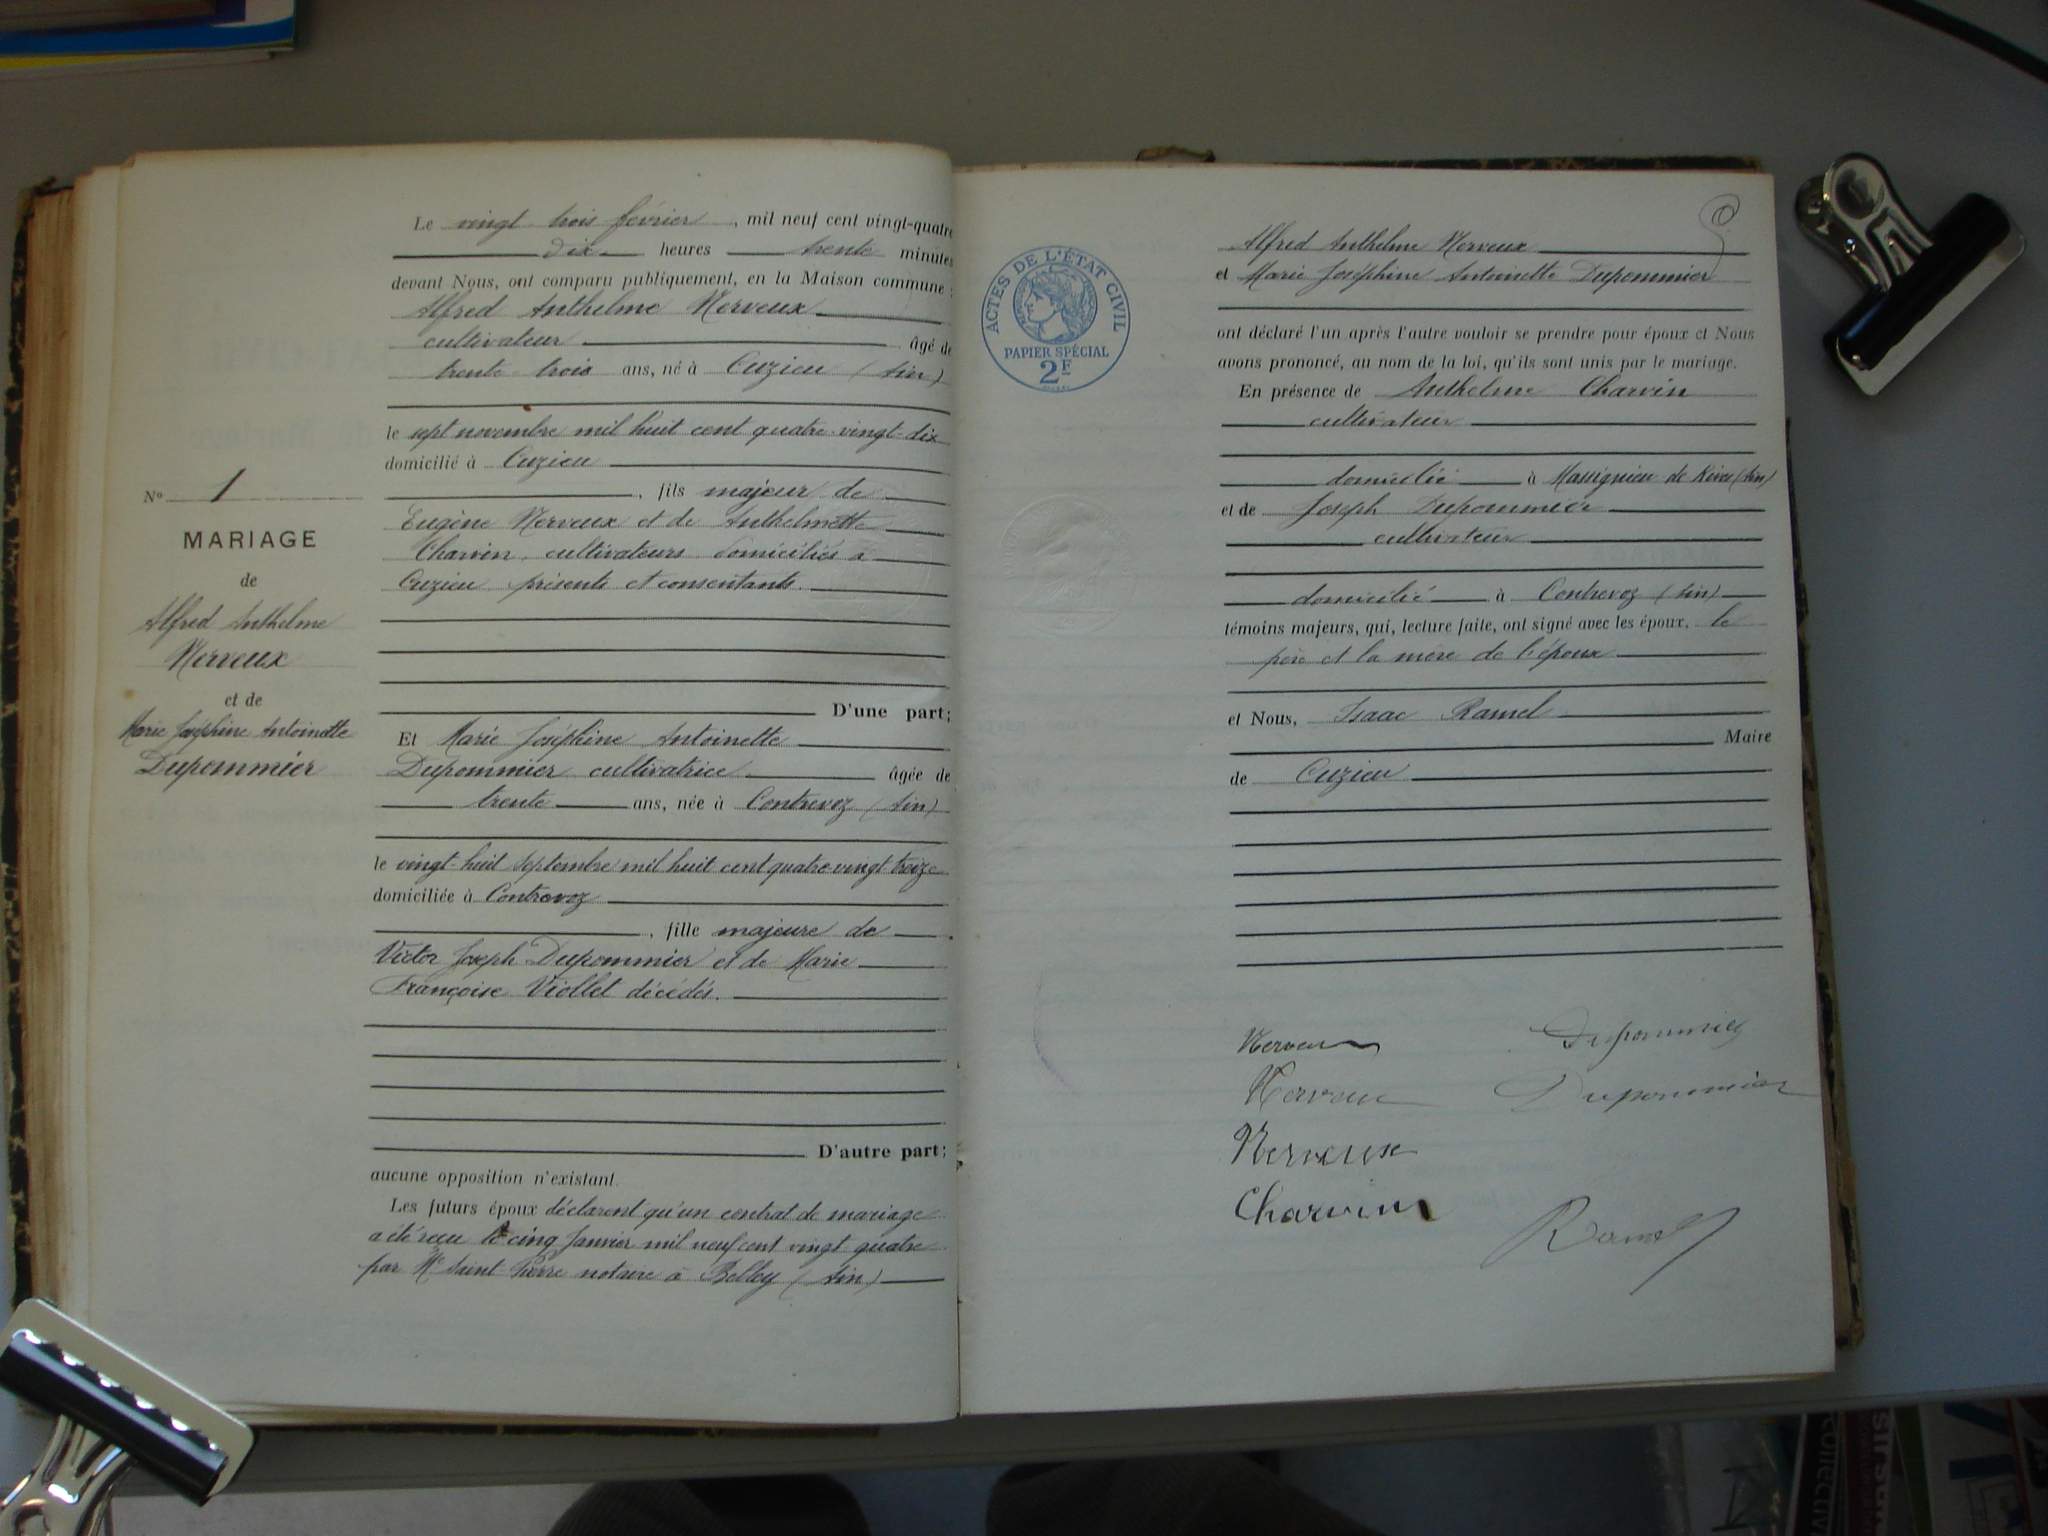 N° 1
MARIAGE
de
Alfred Anthelme
Nerveux
et de
Marie Joséphine Antoinette
Dupommier
Le vingt trois février, mil neuf cent vingt-quatre
dix heures trente minutes
devant Nous, ont comparu publiquement, en la Maison commune :
Alfred Anthelme Nerveux
cultivateur âgé de
trente trois ans, né à Cuzieu (Ain)
le sept novembre mil huit cent quatre-vingt-dix
domicilié à Cuzieu
, fils majeur de
Eugène Nerveux et de Anthelmette
Charvin, cultivateurs domiciliés à
Cuzieu présents et consentants.
D'une part;
Et Marie Joséphine Antoinette
Dupommier cultivatrice âgée de
trente ans, née à Contrevoz (Ain)
le vingt-huit septembre mil huit cent quatre-vingt treize
domiciliée à Contrevoz
, fille majeure de
Victor Joseph Dupommier et de Marie
Françoise Viollet décédés.
D'autre part;
aucune opposition n'existant.
Les futurs époux déclarent qu'un contrat de mariage
a été reçu le cinq Janvier mil neuf cent vingt quatre
par Me Saint Pierre notaire à Belley (Ain)
ACTES DE L'ÉTAT CIVIL
PAPIER SPÉCIAL
2F
Alfred Anthelme Nerveux
et Marie Joséphine Antoinette Dupommier
ont déclaré l'un après l'autre vouloir se prendre pour époux et Nous
avons prononcé, au nom de la loi, qu'ils sont unis par le mariage.
En présence de Anthelme Charvin
cultivateur
domicilié à Massignieu de Rives (Ain)
et de Joseph Dupommier
cultivateur
domicilié à Contrevoz (Ain)
témoins majeurs, qui, lecture faite, ont signé avec les époux, le
père et la mère de l'époux
et Nous, Isaac Ramel
Maire
de Cuzieu
Nerveux Dupommier
Nerveux Dupommier
Nerveux
Charvin
Ramel